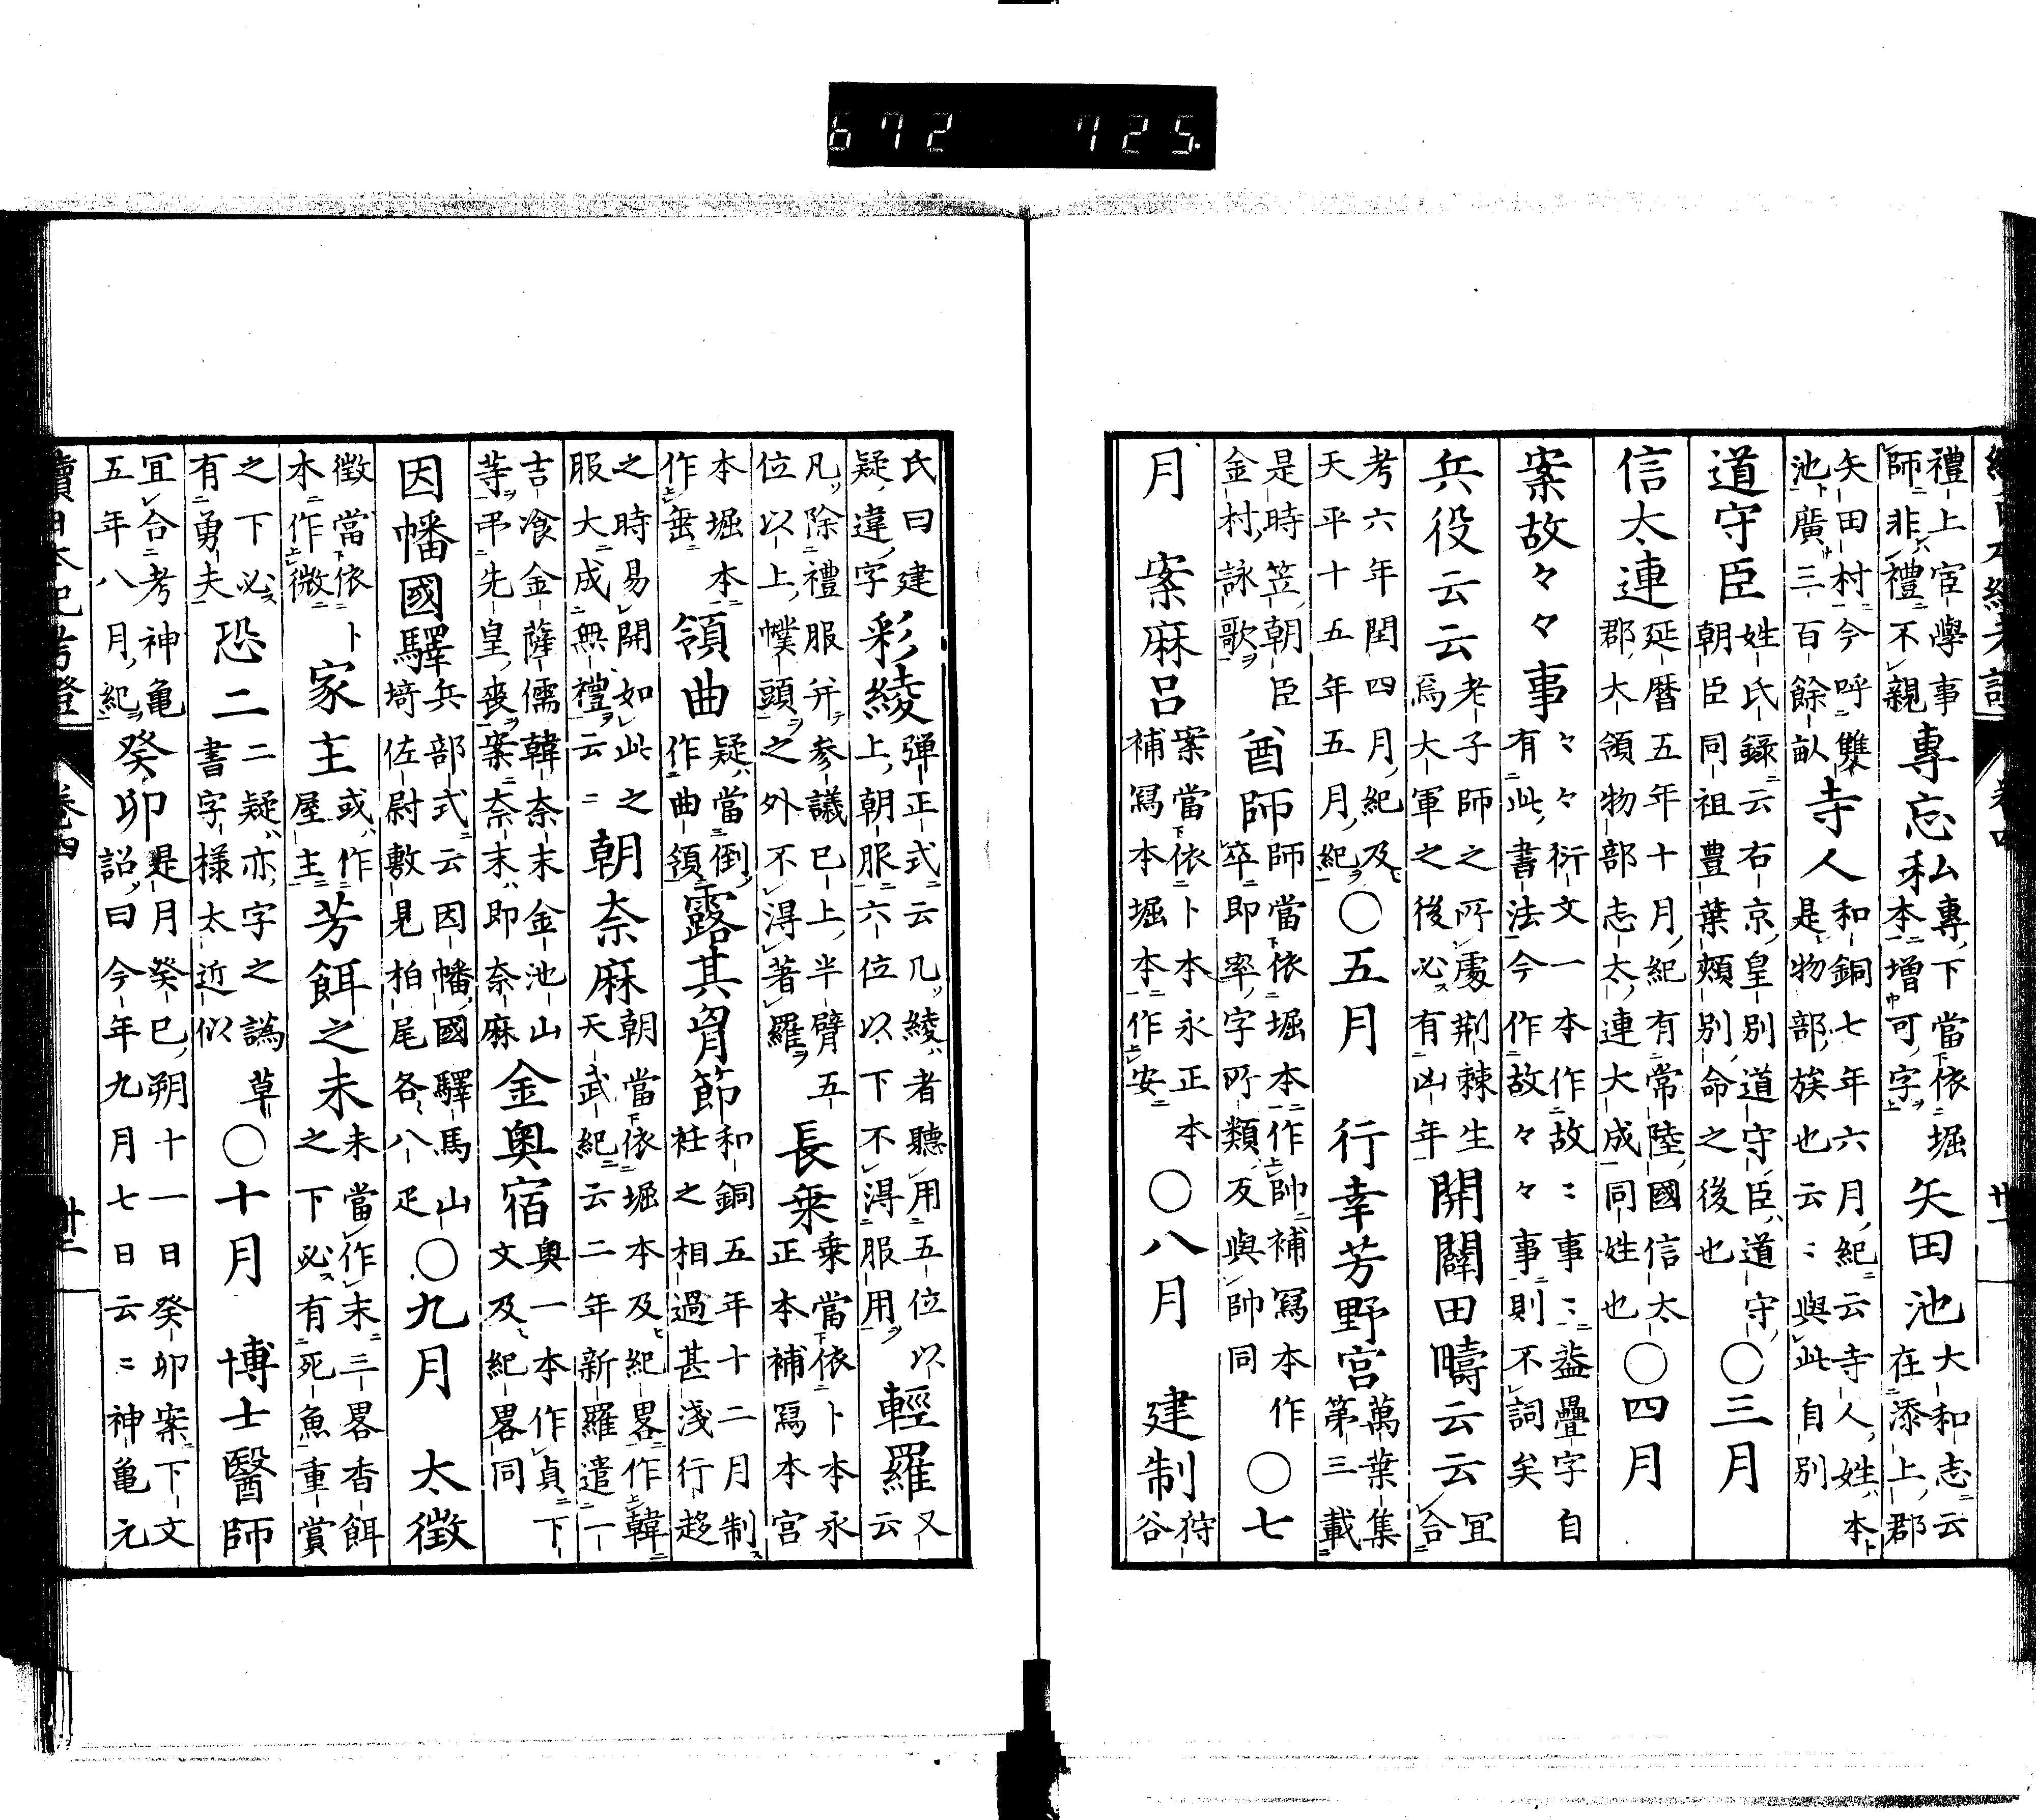 672 725.
禮上宦學事師非禮不親專忘私專下當依堀本增可字矢田池大和志云在添上郡
矢田村今呼雙池廣三百餘畝寺人和銅七年六月紀云寺人姓本是物部族也云〻與此自別
道守臣姓氏錄云右京皇別道守臣道守朝臣同祖豊葉頰別命之後也〇三月
信太連延暦五年十月紀有常陸國信太郡大領物部志太連大成同姓也〇四月
案故々々事々々衍文一本作故〻〻事〻〻盖疊字自有此書法今作故々々事則不詞矣
兵役云云老子師之所處荆棘生焉大軍之後必有凶年開闢田疇云云冝合
考六年閏四月紀及天平十五年五月紀〇五月 行幸芳野宮萬葉集第三載
是時笠朝臣金村詠歌酋師師當依堀本作帥補冩本作卒即率字所類友與帥同〇七
月 案麻呂案當依卜本永正本補冩本堀本作安〇八月 建制狩谷
氏曰建疑違字彩綾弾正式云凡綾者聽用五位以上朝服六位以下不得服用輕羅又云
凡除禮服并参議已上半臂五位以上幞頭之外不得著羅長乗乗當依卜本永正本補冩本宮
本堀本作垂領曲疑當倒作曲領露其𮌎節和銅五年十二月制衽之相過甚淺行趍
之時易開如此之服大成無禮云〻朝奈麻朝當依堀本及紀畧作韓天武紀云二年新羅遣
吉飡金薩儒韓奈末金池山等弔先皇喪案奈末即奈麻金奥宿奥一本作貞下文及紀畧同
因幡國驛兵部式云因幡國驛馬山埼佐尉敷見柏尾各八疋〇九月 太徵
徵當依卜本作微家主或作屋主芳餌之未未當作末三畧香餌之下必有死魚重賞
之下必有勇夫恐二二疑亦字之譌草書字様太近似〇十月 博士醫師
冝合考神亀五年八月紀癸卯是月癸巳朔十一日癸卯案下文詔曰今年九月七日云〻神亀元
續日本紀考證 卷四 廿二